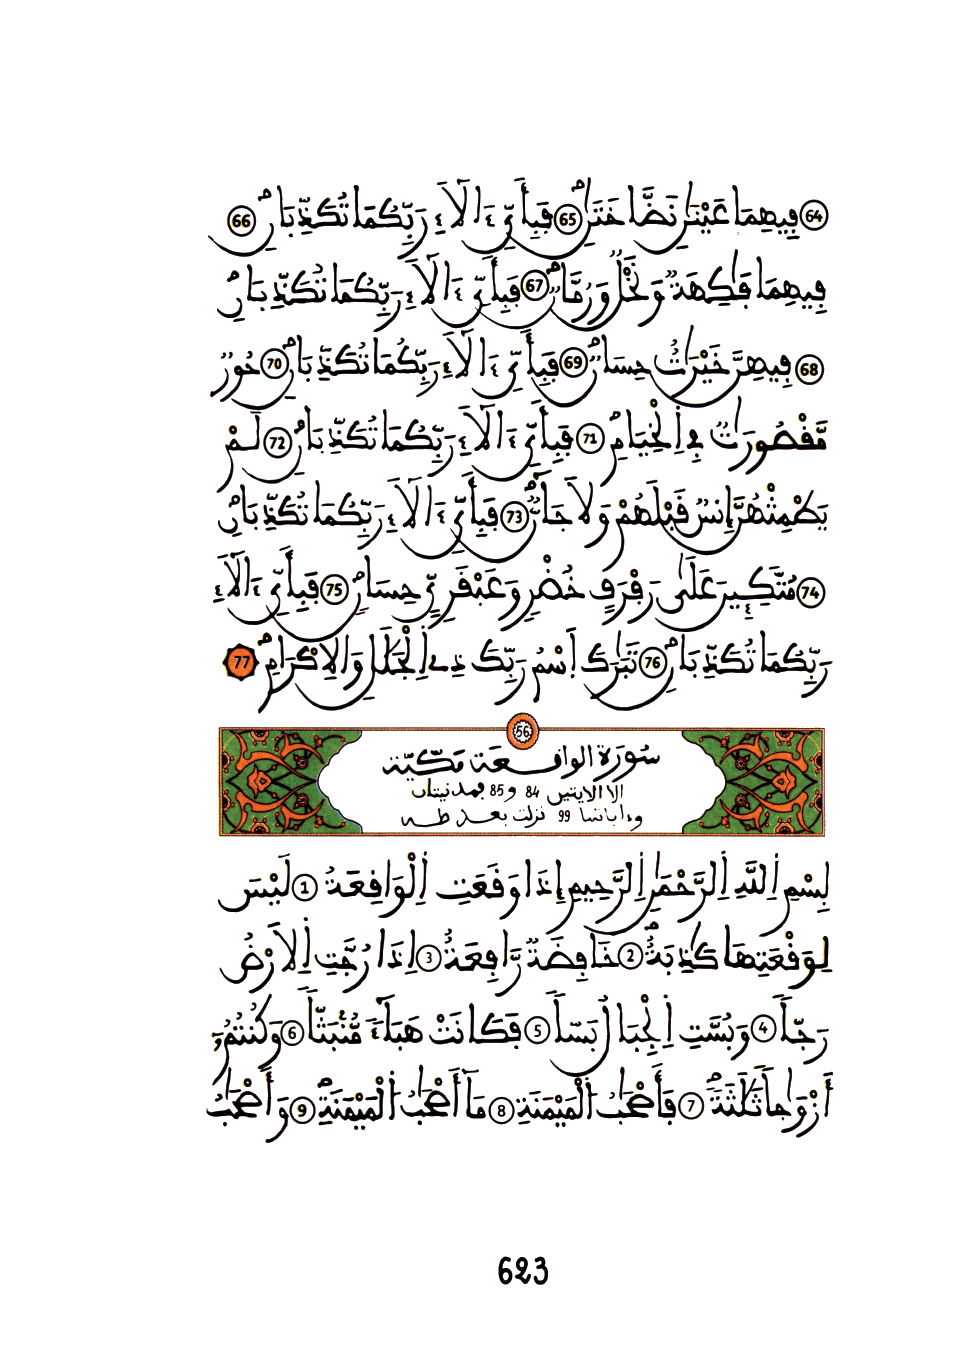 64 فِيهِمَا عَيْنَٰنِ نَضَّاخَتَٰنِ 65 فَبِأَيِّ ءَالَآءِ رَبِّكُمَا تُكَذِّبَانِ 66
فِيهِمَا فَٰكِهَةٌ وَنَخْلٌ وَرُمَّانٌ 67 فَبِأَيِّ ءَالَآءِ رَبِّكُمَا تُكَذِّبَانِ
68 فِيهِنَّ خَيْرَٰتٌ حِسَانٌ 69 فَبِأَيِّ ءَالَآءِ رَبِّكُمَا تُكَذِّبَانِ 70 حُورٌ
مَّقْصُورَٰتٌ فِي اِلْخِيَامِ 71 فَبِأَيِّ ءَالَآءِ رَبِّكُمَا تُكَذِّبَانِ 72 لَمْ
يَطْمِثْهُنَّ إِنسٌ قَبْلَهُمْ وَلَا جَآنٌّ 73 فَبِأَيِّ ءَالَآءِ رَبِّكُمَا تُكَذِّبَانِ
74 مُتَّكِـِٕينَ عَلَىٰ رَفْرَفٍ خُضْرٍ وَعَبْقَرِيٍّ حِسَانٍ 75 فَبِأَيِّ ءَالَآءِ
رَبِّكُمَا تُكَذِّبَانِ 76 تَبَٰرَكَ اَسْمُ رَبِّكَ ذِي اِلْجَلَٰلِ وَالْإِكْرَامِ 77
56
سُورَة الواقعَة مَكِّيَّة
الا الايتين 84 و 85 فمدنيتان
وءاياتها 99 نزلت بعد طه
بِسْمِ اِللَّهِ اِلرَّحْمَٰنِ اِلرَّحِيمِ إِذَا وَقَعَتِ اِلْوَاقِعَةُ 1 لَيْسَ
لِوَقْعَتِهَا كَٰذِبَةٌ 2 خَافِضَةٌ رَّافِعَةٌ 3 إِذَا رُجَّتِ اِلْأَرْضُ
رَجّاً 4 وَبُسَّتِ اِلْجِبَالُ بَسّاً 5 فَكَانَتْ هَبَآءً مُّنۢبَثّاً 6 وَكُنتُمُۥٓ
أَزْوَٰجاً ثَلَٰثَةً 7 فَأَصْحَٰبُ اُلْمَيْمَنَةِ 8 مَآ أَصْحَٰبُ اُلْمَيْمَنَةِ 9 وَأَصْحَٰبُ
623